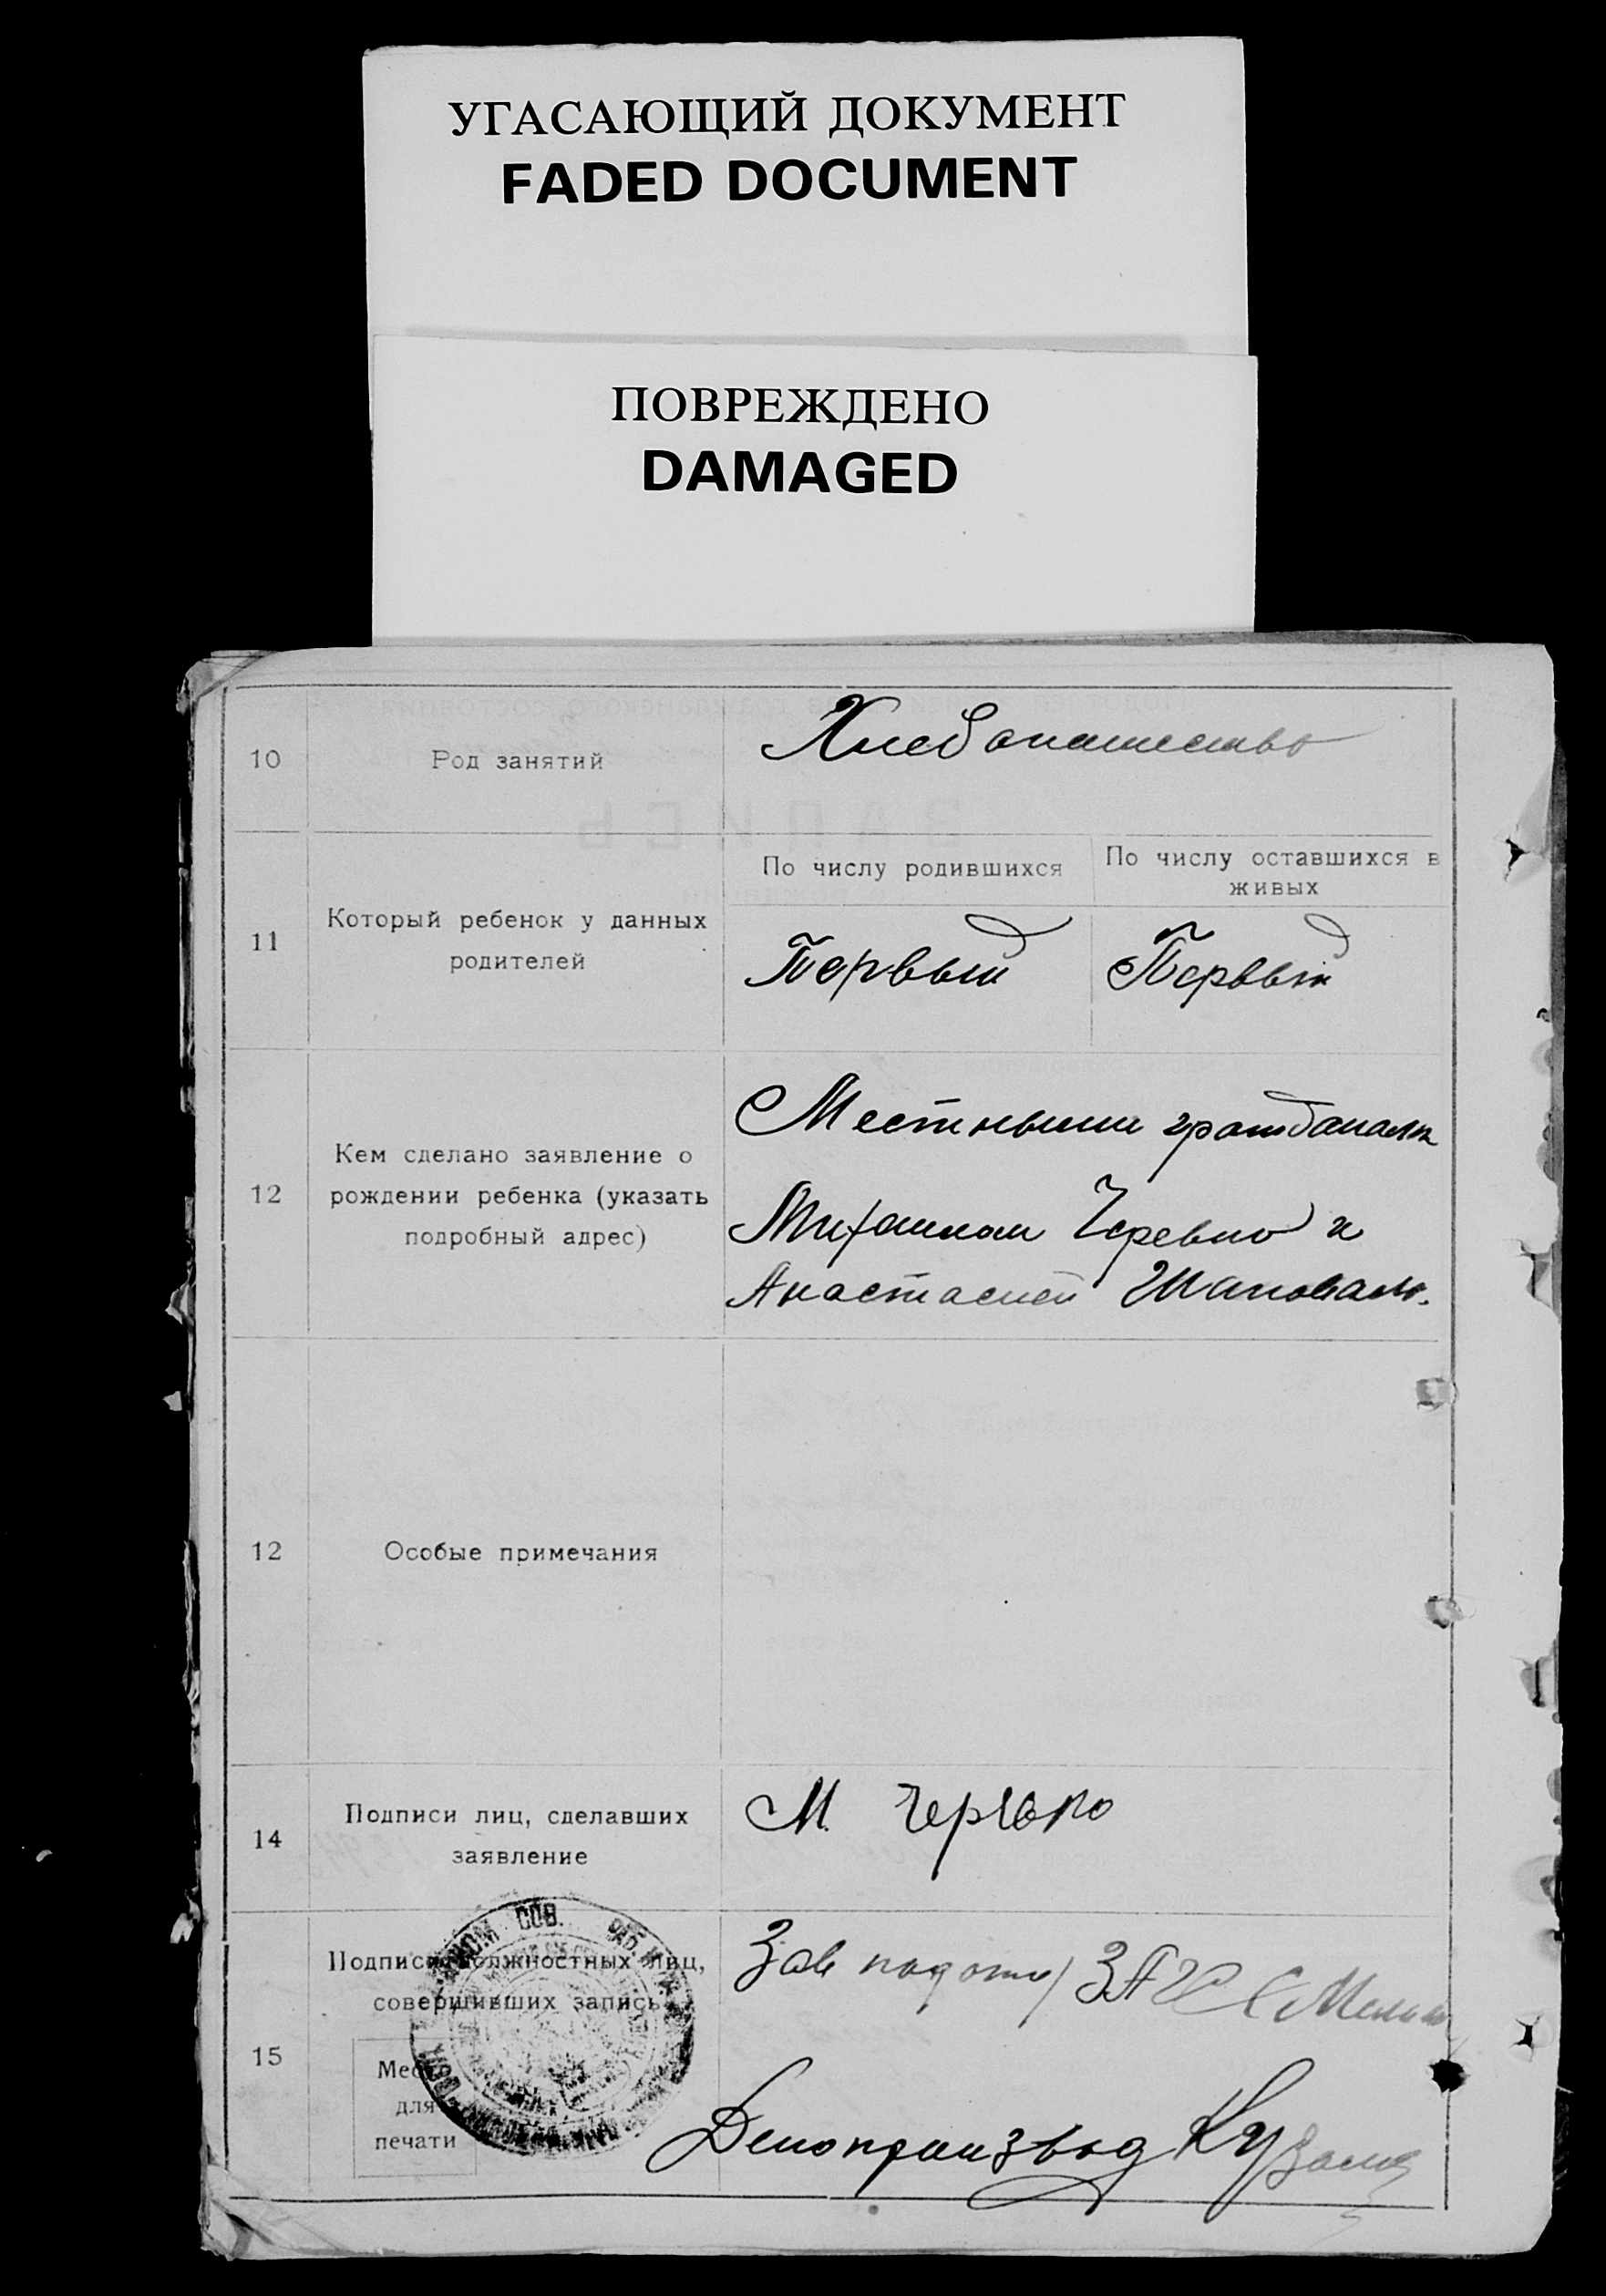 УГАСАЮЩИЙ ДОКУМЕНТ
FADED DOCUMENT
ПОВРЕЖДЕНО
DAMAGED
10
Род занятий
Хлебопашество
11
Который ребенок у данных
родителей
По числу родившихся
По числу оставшихся в
живых
Первый
Первый
12
Кем сделано заявление о
рождении ребенка (указать
подробный адрес)
Местными гражданами
Михаилом Черевко и
Анастасией Шаповало.
12
Особые примечания
14
Подписи лиц, сделавших
заявление
М. Черевко
15
Подписи должностных лиц,
совершивших запись
Место
для
печати
СОВ.
Зав подотд ЗАГС
Делопроизвод